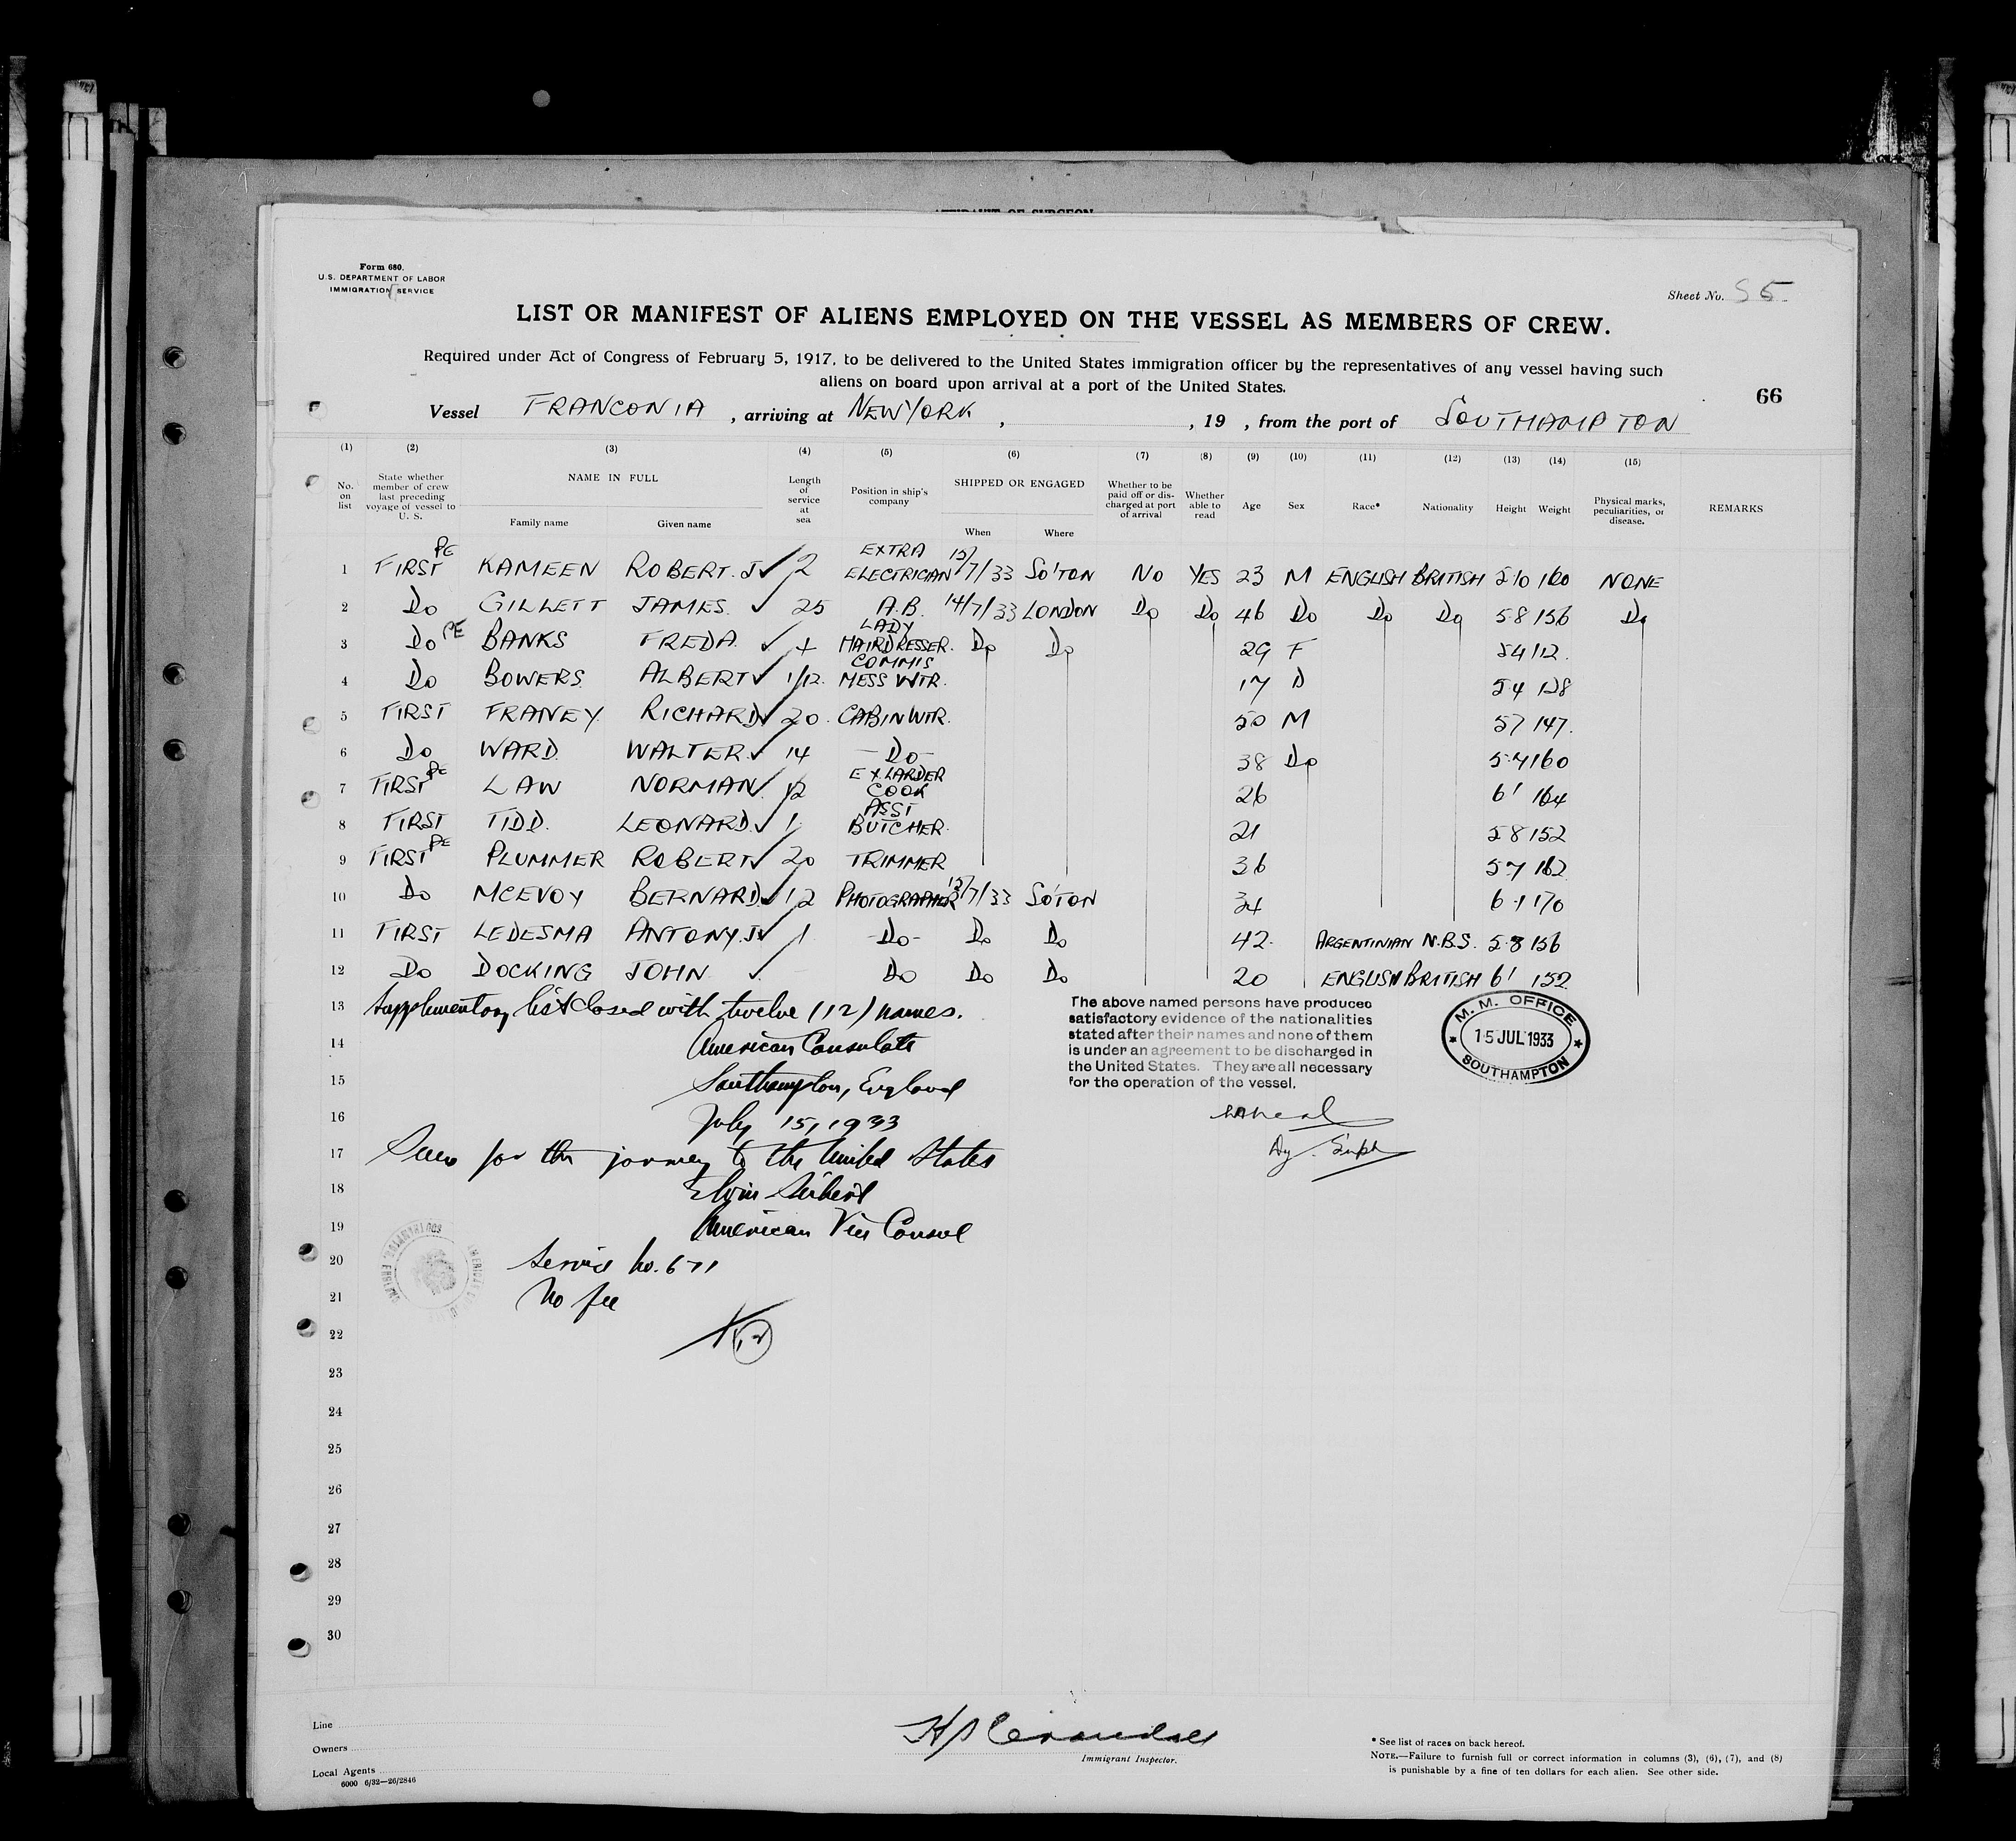 AFFIDAVIT OF SURGEON
Form 680.
U.S. DEPARTMENT OF LABOR
IMMIGRATION SERVICE
Sheet No. S 5.
LIST OR MANIFEST OF ALIENS EMPLOYED ON THE VESSEL AS MEMBERS OF CREW.
Required under Act of Congress of February 5, 1917, to be delivered to the United States immigration officer by the representatives of any vessel having such
aliens on board upon arrival at a port of the United States.
66
Vessel FRANCONIA , arriving at NEW YORK , , 19 , from the port of SOUTHAMPTON
(1) (2) (3) (4) (5) (6) (7) (8) (9) (10) (11) (12) (13) (14) (15)
No. on list State whether member of crew last preceding voyage of vessel to U. S. NAME IN FULL Family name Given name Length of service at sea Position in ship's company SHIPPED OR ENGAGED When Where Whether to be paid off or dis- charged at port of arrival Whether able to read Age Sex Race* Nationality Height Weight Physical marks, peculiarities, or disease. REMARKS
1 FIRST PE KAMEEN ROBERT. J ✓ 2 EXTRA ELECTRICIAN 15/7/33 SO'TON NO YES 23 M ENGLISH BRITISH 5'10 160 NONE
2 Do GILLETT JAMES. ✓ 25 A.B. 14/7/33 LONDON Do Do 46 Do Do Do 5 8 156 Do
3 Do PE BANKS FREDA. ✓ LADY HAIRDRESSER. Do Do 29 F 5 4 112.
4 Do BOWERS. ALBERT ✓ 1/12. COMMIS MESS WTR. 17 5 4 128
5 FIRST FRANEY RICHARD ✓ 20. CABIN WTR. 50 M 5 7 147.
6 Do WARD. WALTER. ✓ 14 —Do— 38 Do 5.7 160
7 FIRST PE LAW NORMAN. 12 EX LARDER COOK 26 6' 164
8 FIRST TIDD. LEONARD. ✓ 1. ASST BUTCHER. 21 5 8 152
9 FIRST PE PLUMMER ROBERT ✓ 20 TRIMMER 36 5 7 162
10 Do MCEVOY BERNARD. ✓ 12 PHOTOGRAPHER 15/7/33 SO'TON 34 6.1 170
11 FIRST LEDESMA ANTONY. J ✓ 1 -Do- Do Do 42. ARGENTINIAN N.B.S. 5.8 156
12 Do DOCKING JOHN ✓ - Do Do Do 20 ENGLISH BRITISH 6' 152
13 Supplementary list closed with twelve (12) names.
The above named persons have produced
satisfactory evidence of the nationalities
stated after their names and none of them
is under an agreement to be discharged in
the United States. They are all necessary
for the operation of the vessel.
M. M. OFFICE
15 JUL 1933
SOUTHAMPTON
14 American Consulate
15 Southampton, England
16 July 15, 1933
17 Seen for the journey to the United States
18 Elvin Seibert
19 American Vice Consul
20 Service No. 671
21 No fee
22
23
24
25
26
27
28
29
30
Line
Owners
Local Agents
6000 6/32—26/2846
Immigrant Inspector.
* See list of races on back hereof.
NOTE.—Failure to furnish full or correct information in columns (3), (6), (7), and (8)
is punishable by a fine of ten dollars for each alien. See other side.